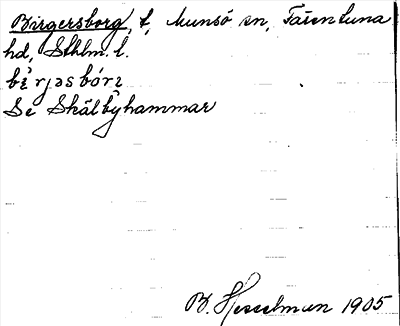 Birgersborg, t, Munsö sn, Färentuna
hd, Sthlm. l.
Se Skälbyhammar
B. Hesselman 1905